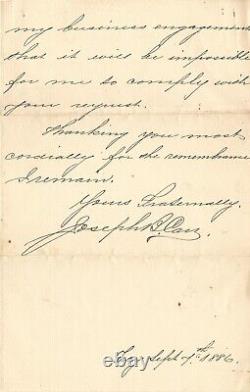 my business engagements
that it will be impossible
for me to comply with
your request.
Thanking you most
cordially for the remembrance
I remain.
Yours Fraternally,
Joseph B. Carr.
Troy Sept 7th 1886.